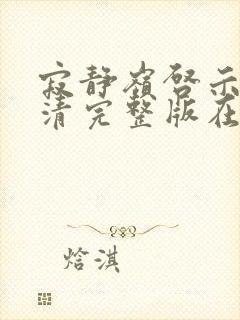 寂静岭启示
清完整版在
焓淇